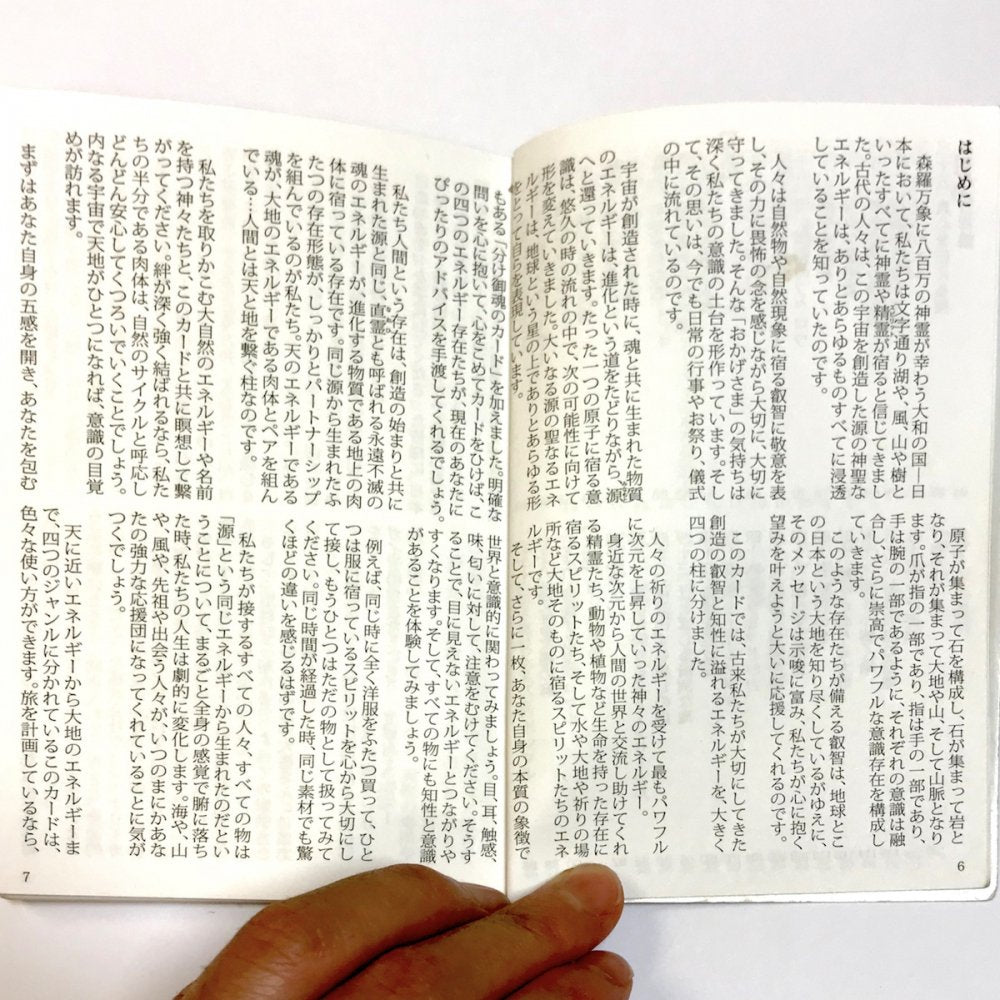 はじめに
森羅万象に八百万の神霊が幸わう大和の国―日
本において、私たちは文字通り湖や、風、山や樹と
いったすべてに神霊や精霊が宿ると信じてきまし
た。古代の人々は、この宇宙を創造した源の神聖な
エネルギーは、ありとあらゆるものすべてに浸透
していることを知っていたのです。
人々は自然物や自然現象に宿る叡智に敬意を表
し、その力に畏怖の念を感じながら大切に、大切に
守ってきました。そんな「おかげさま」の気持ちは
深く私たちの意識の土台を形作っています。そし
て、その思いは、今でも日常の行事やお祭り、儀式
の中に流れているのです。
宇宙が創造された時に、魂と共に生まれた物質
のエネルギーは、進化という道をたどりながら、源
へと還っていきます。たった一つの原子に宿る意
識は、悠久の時の流れの中で、次の可能性に向けて
形を変えていきました。大いなる源の聖なるエネ
ルギーは、地球という星の上でありとあらゆる形
をとって自らを表現しています。
原子が集まって石を構成し、石が集まって岩と
なり、それが集まって大地や山、そして山脈となり
ます。爪が指の一部であり、指は手の一部であり、
手は腕の一部であるように、それぞれの意識は融
合し、さらに崇高でパワフルな意識存在を構成し
ていきます。
このような存在たちが備える叡智は、地球とこ
の日本という大地を知り尽くしているがゆえに、
そのメッセージは示唆に富み、私たちが心に抱く
望みを叶えようと大いに応援してくれるのです。
このカードでは、古来私たちが大切にしてきた
創造の叡智と知性に溢れるエネルギーを、大きく
四つの柱に分けました。
人々の祈りのエネルギーを受けて最もパワフル
に次元を上昇していった神々のエネルギー。
身近な次元から人間の世界と交流し助けてくれ
る精霊たち、動物や植物など生命を持った存在に
宿るスピリットたち、そして水や大地や祈りの場
所など大地そのものに宿るスピリットたちのエネ
ルギーです。
そして、さらに一枚、あなた自身の本質の象徴で
6
もある「分け御魂のカード」を加えました。明確な
問いを心に抱いて、心をこめてカードをひけば、こ
の四つのエネルギー存在たちが、現在のあなたに
ぴったりのアドバイスを手渡してくれるでしょう。
私たち人間という存在は、創造の始まりと共に
生まれた源と同じ、直霊とも呼ばれる永遠不滅の
魂のエネルギーが、進化する物質である地上の肉
体に宿っている存在です。同じ源から生まれたふ
たつの存在形態が、しっかりとパートナーシップ
を組んでいるのが私たち。天のエネルギーである
魂が、大地のエネルギーである肉体とペアを組ん
でいる…人間とは天と地を繋ぐ柱なのです。
私たちを取りかこむ大自然のエネルギーや名前
を持つ神々たちと、このカードと共に瞑想して繋
がってください。絆が深く強く結ばれるなら、私た
ちの半分である肉体は、自然のサイクルと呼応し
どんどん安心してくつろいでいくことでしょう。
内なる宇宙で天地がひとつになれば、意識の目覚
めが訪れます。
まずはあなた自身の五感を開き、あなたを包む
世界と意識的に関わってみましょう。目、耳、触感、
味、匂いに対して、注意をむけてください。そうす
ることで、目に見えないエネルギーとつながりや
すくなります。そして、すべての物にも知性と意識
があることを体験してみましょう。
例えば、同じ時に全く洋服をふたつ買って、ひと
つは服に宿っているスピリットを心から大切にし
て接し、もうひとつはただの物として扱ってみて
ください。同じ時間が経過した時、同じ素材でも驚
くほどの違いを感じるはずです。
私たちが接するすべての人々、すべての物は
「源」という同じエネルギーから生まれたのだとい
うことについて、まるごと全身の感覚で腑に落ち
た時、私たちの人生は劇的に変化します。海や、山
や、風や、先祖や出会う人々が、いつのまにかあな
たの強力な応援団になってくれていることに気が
つくでしょう。
天に近いエネルギーから大地のエネルギーま
で、四つのジャンルに分かれているこのカードは、
色々な使い方ができます。旅を計画しているなら、
7